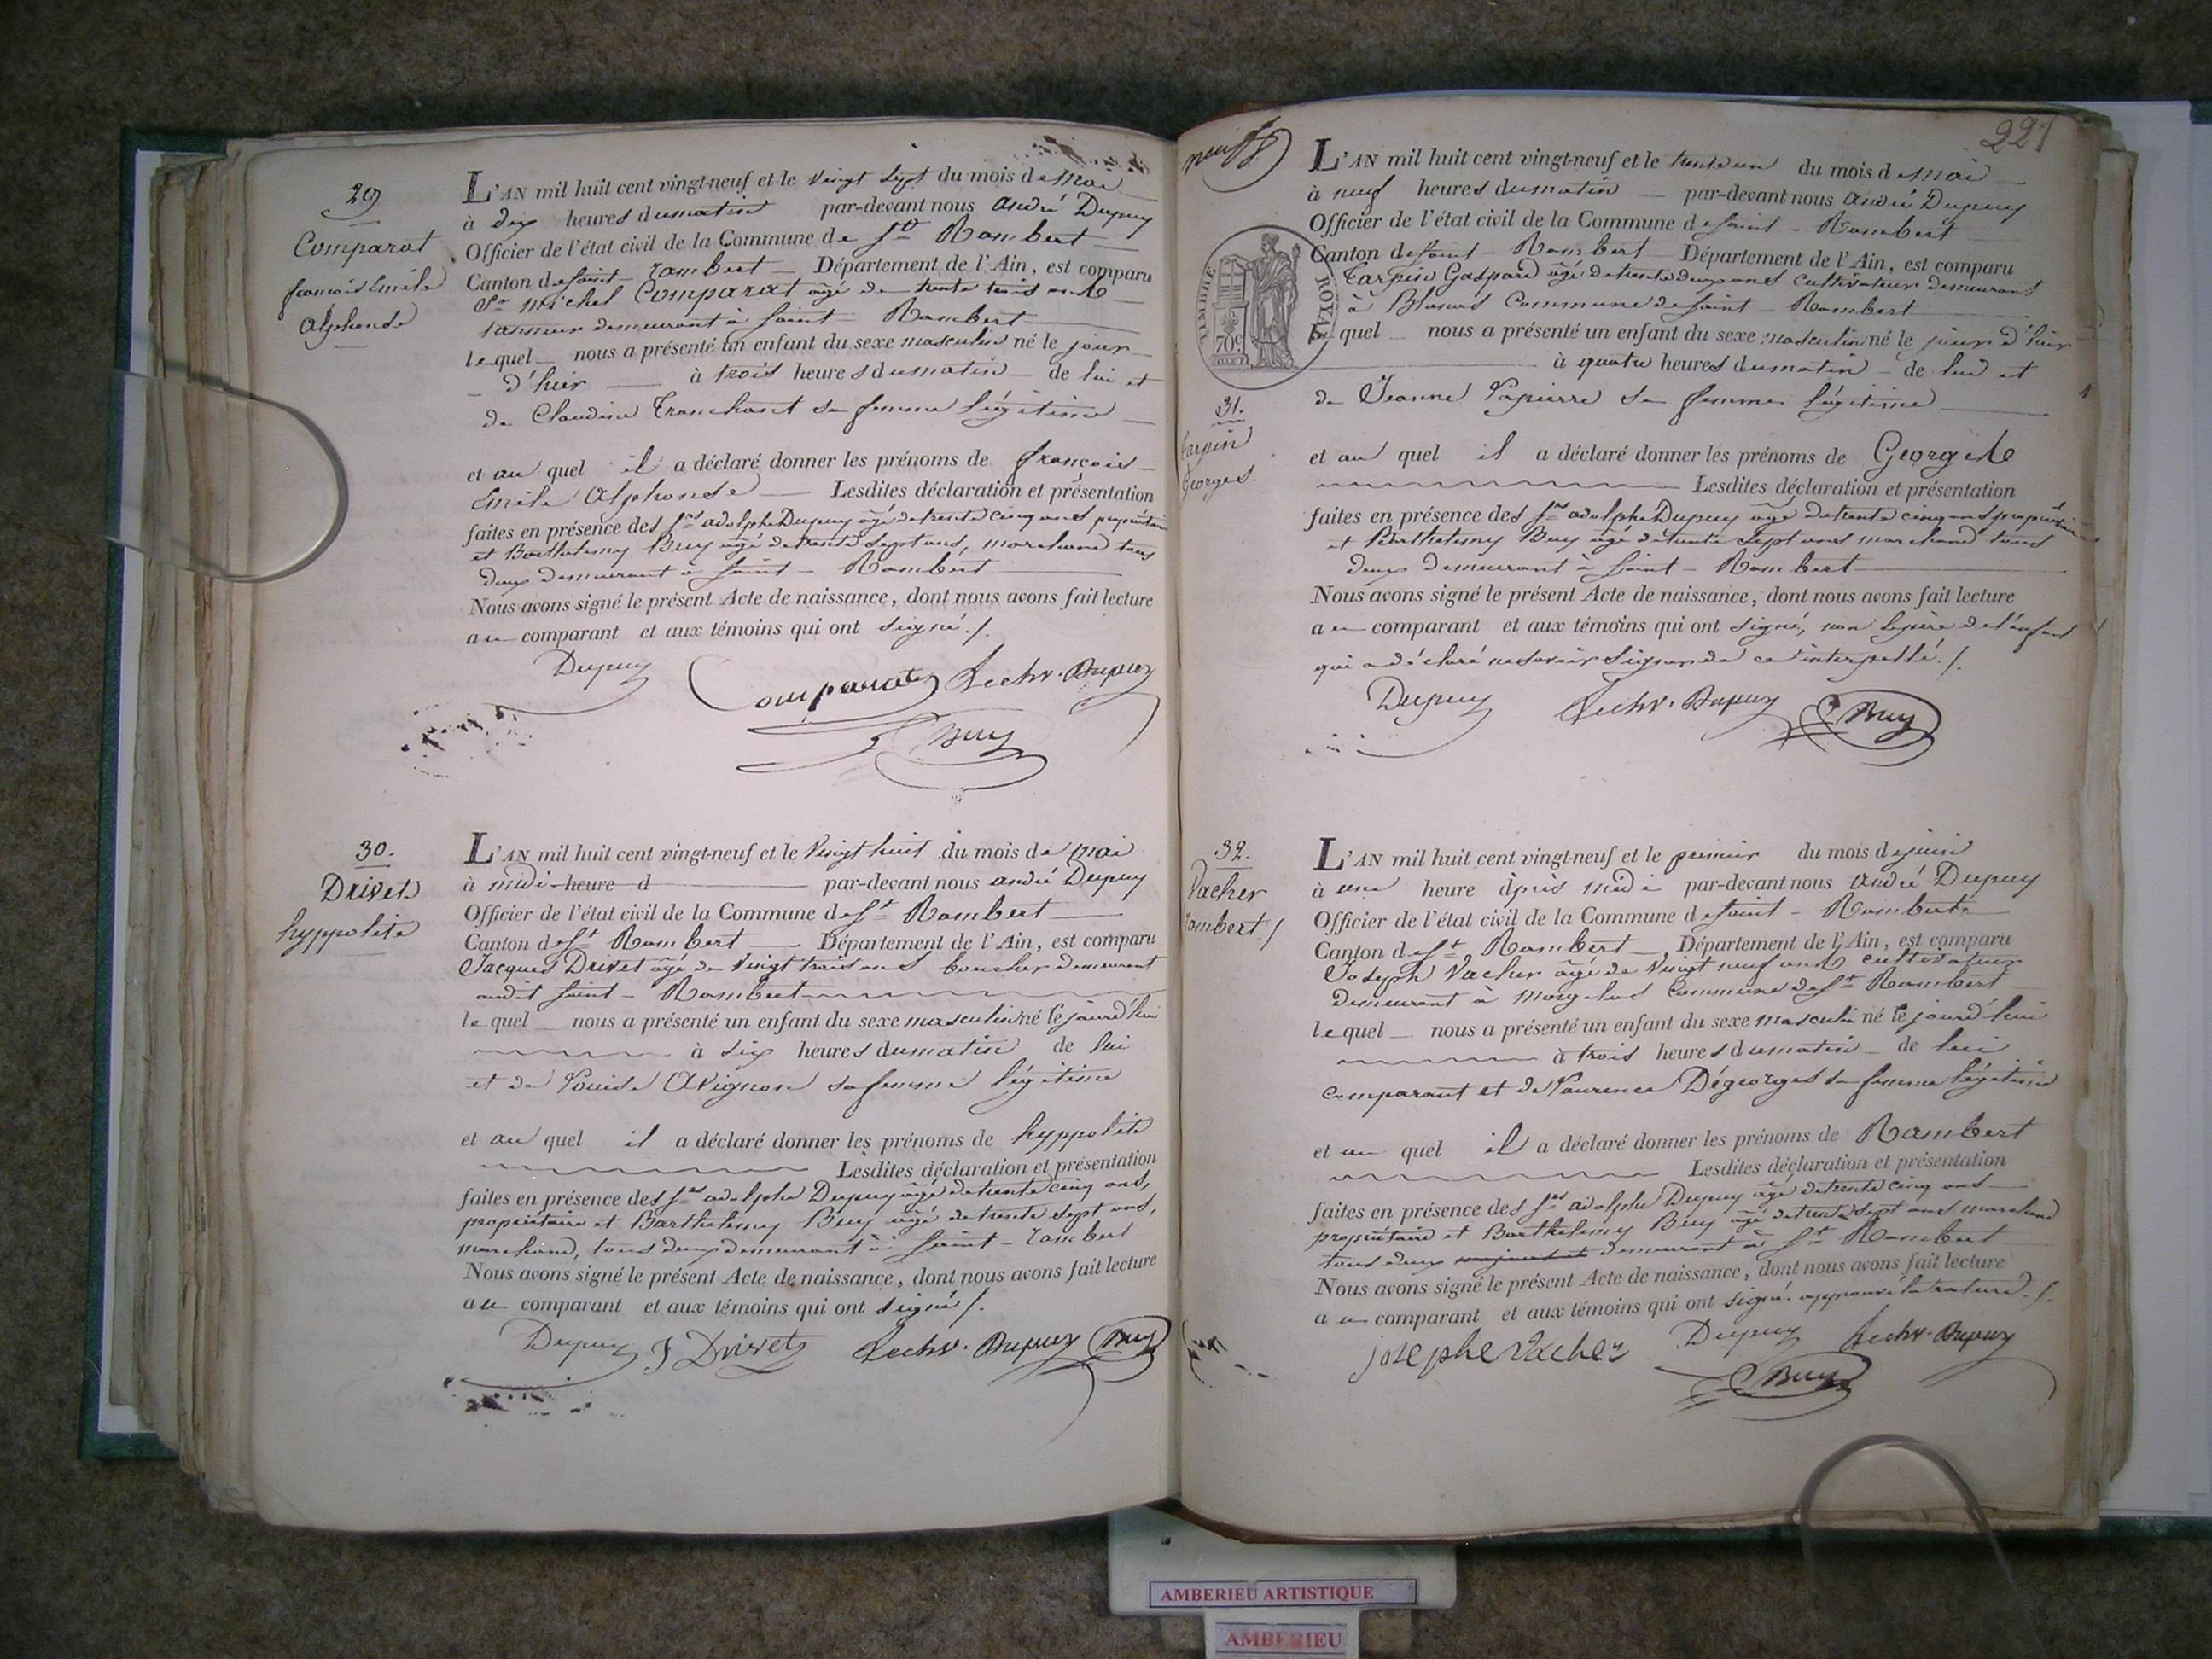 29
Comparat
françois Emile
Alphonse
L'AN mil huit cent vingt-neuf et le Vingt Sept du mois de Mai
à dix heures du matin par-devant nous André Dupuy
Officier de l'état civil de la Commune de St Rambert
Canton de Saint Rambert Département de l'Ain, est comparu
Sr Michel Comparat âgé de trente trois ans
tanneur demeurant à Saint Rambert
lequel nous a présenté un enfant du sexe masculin né le jour
d'hier à trois heures du matin de lui et
de Claudine Tranchant sa femme légitime
et au quel il a déclaré donner les prénoms de françois
Emile Alphonse Lesdites déclaration et présentation
faites en présence des Srs adolphe Dupuy âgé de trente cinq ans propriétaire
et Barthelemy Buy âgé de trente sept ans, marchand tous
deux demeurant à Saint - Rambert
Nous avons signé le présent Acte de naissance, dont nous avons fait lecture
au comparant et aux témoins qui ont signé ./.
Dupuy Comparat Dupuy
Buy
30.
Drivet
hyppolite
L'AN mil huit cent vingt-neuf et le Vingt huit du mois de Mai
à midi heure d par-devant nous André Dupuy
Officier de l'état civil de la Commune de St Rambert
Canton de St Rambert Département de l'Ain, est comparu
Jacques Drivet âgé de Vingt trois ans boucher demeurant
audit Saint - Rambert
lequel nous a présenté un enfant du sexe masculin né le jourd'hui
à six heures du matin de lui
et de Louise Avignon sa femme légitime
et au quel il a déclaré donner les prénoms de hyppolite
Lesdites déclaration et présentation
faites en présence des Srs adolphe Dupuy âgé de trente cinq ans,
propriétaire et Barthelemy Buy âgé de trente sept ans,
marchand, tous deux demeurant à Saint - Rambert
Nous avons signé le présent Acte de naissance, dont nous avons fait lecture
au comparant et aux témoins qui ont signé /.
Dupuy J Drivet Dupuy Buy
neuf
221
TIMBRE ROYAL
70c
31.
Tarpin
Georges.
L'AN mil huit cent vingt-neuf et le trente un du mois de Mai
à neuf heures du matin par-devant nous André Dupuy
Officier de l'état civil de la Commune de Saint - Rambert
Canton de Saint - Rambert Département de l'Ain, est comparu
Tarpin Gaspard âgé de trente deux ans Cultivateur demeurant
à Blanas Commune de Saint - Rambert
lequel nous a présenté un enfant du sexe masculin né le jour d'hier
à quatre heures du matin de lui et
de Jeanne Papierre sa femme légitime
et au quel il a déclaré donner les prénoms de Georges
Lesdites déclaration et présentation
faites en présence des Srs adolphe Dupuy âgé de trente cinq ans propriétaire
et Barthelemy Buy âgé de trente sept ans marchand tous
deux demeurant à Saint - Rambert
Nous avons signé le présent Acte de naissance, dont nous avons fait lecture
au comparant et aux témoins qui ont signé, non le père de l'enfant
qui a déclaré ne savoir signer de ce interpellé ./.
Dupuy Dupuy Buy
32.
Vacher
Rambert /
L'AN mil huit cent vingt-neuf et le premier du mois de juin
à une heure après midi par-devant nous André Dupuy
Officier de l'état civil de la Commune de Saint - Rambert
Canton de St Rambert Département de l'Ain, est comparu
Joseph Vacher âgé de Vingt neuf ans cultivateur
demeurant à Morgelas Commune de St Rambert
lequel nous a présenté un enfant du sexe masculin né le jourd'hui
à trois heures du matin de lui
comparant et de Laurence Dégeorges sa femme légitime
et au quel il a déclaré donner les prénoms de Rambert
Lesdites déclaration et présentation
faites en présence des Srs adolphe Dupuy âgé de trente cinq ans
propriétaire et Barthelemy Buy âgé de trente sept ans marchand
tous deux demeurant à St Rambert
Nous avons signé le présent Acte de naissance, dont nous avons fait lecture
au comparant et aux témoins qui ont signé. approuvé la rature ./.
josephe Vacher Dupuy Dupuy
Buy
AMBERIEU ARTISTIQUE
AMBERIEU